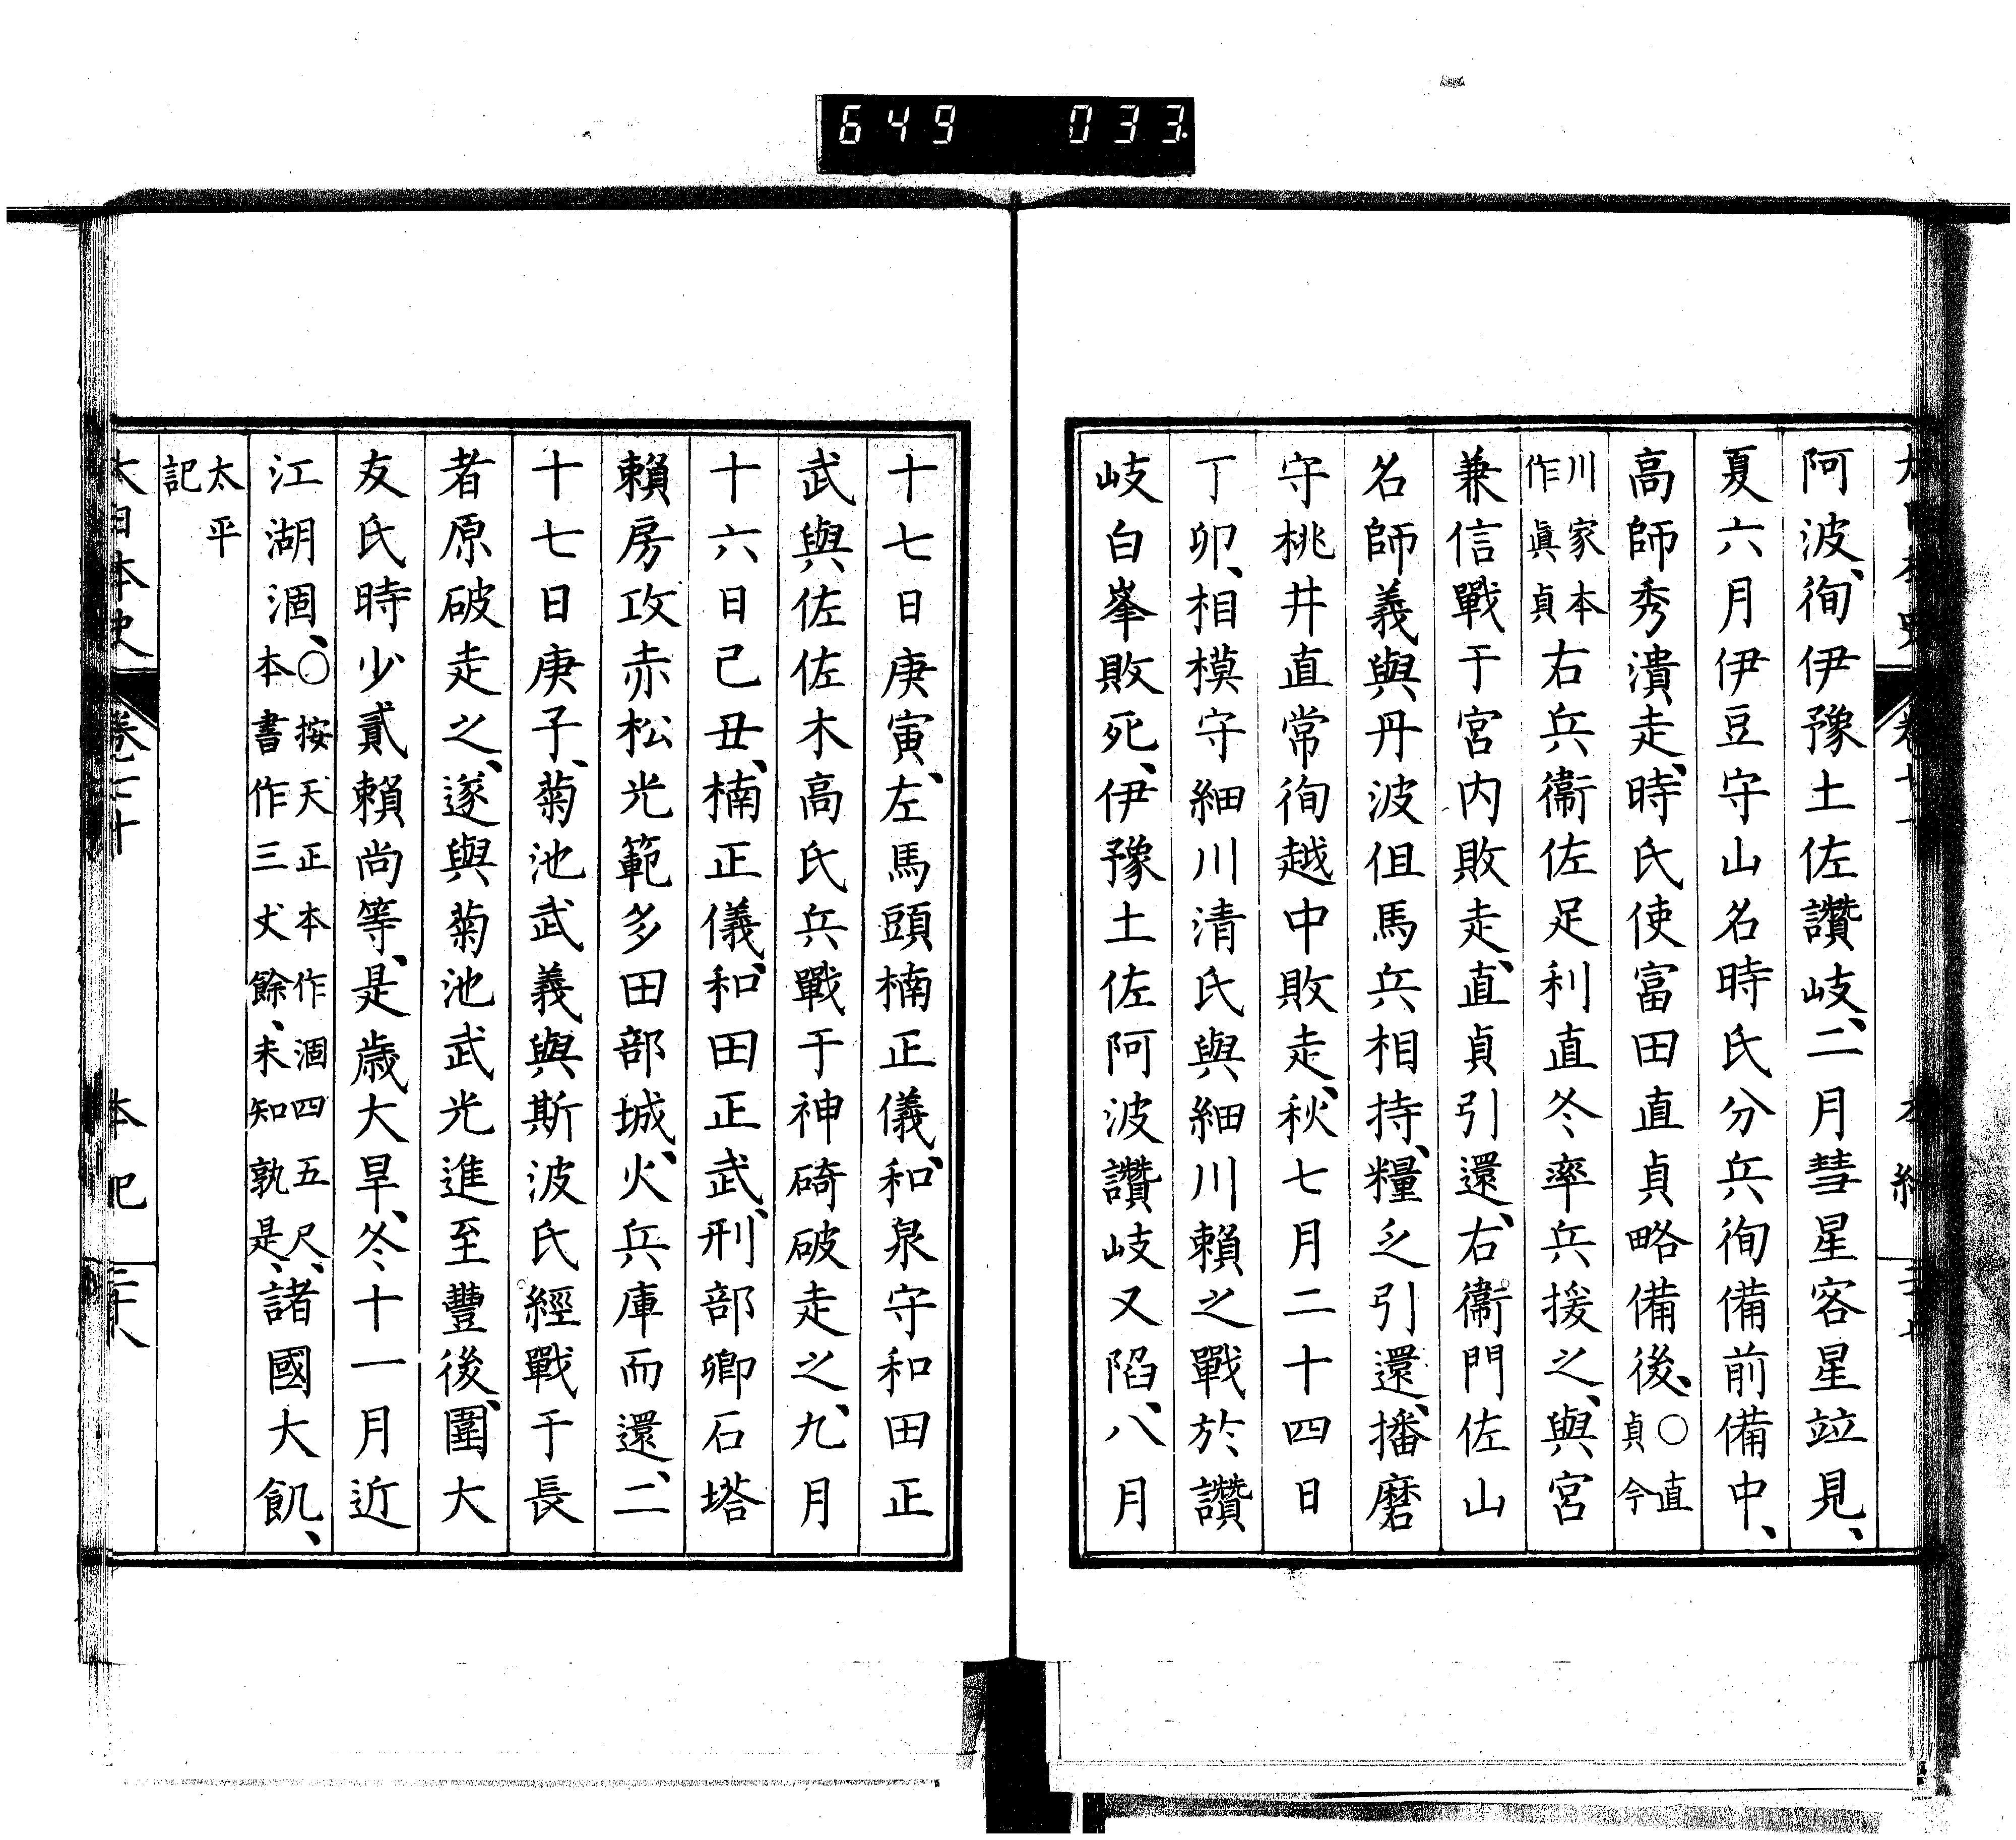 649 033
阿波、徇伊豫土佐讚岐、二月彗星客星竝見、
夏六月伊豆守山名時氏分兵徇備前備中、
高師秀潰走、時氏使富田直貞略備後、○直貞今
川家本作眞貞右兵衞佐足利直冬率兵援之、與宮
兼信戰于宮内敗走、直貞引還、右衞門佐山
名師義與丹波但馬兵相持、糧乏引還、播磨
守桃井直常徇越中敗走、秋七月二十四日
丁卯、相模守細川清氏與細川賴之戰於讚
岐白峯敗死、伊豫土佐阿波讚岐又陷、八月
十七日庚寅、左馬頭楠正儀、和泉守和田正
武與佐佐木高氏兵戰于神碕破走之、九月
十六日己丑、楠正儀、和田正武、刑部卿石塔
賴房攻赤松光範多田部城、火兵庫而還、二
十七日庚子、菊池武義與斯波氏經戰于長
者原破走之、遂與菊池武光進至豐後、圍大
友氏時少貳賴尚等、是歳大旱、冬十一月近
江湖涸、○按天正本作涸四五尺、本書作三丈餘、未知孰是、諸國大飢、
太平記
大日本史 卷七十 本紀 二十八